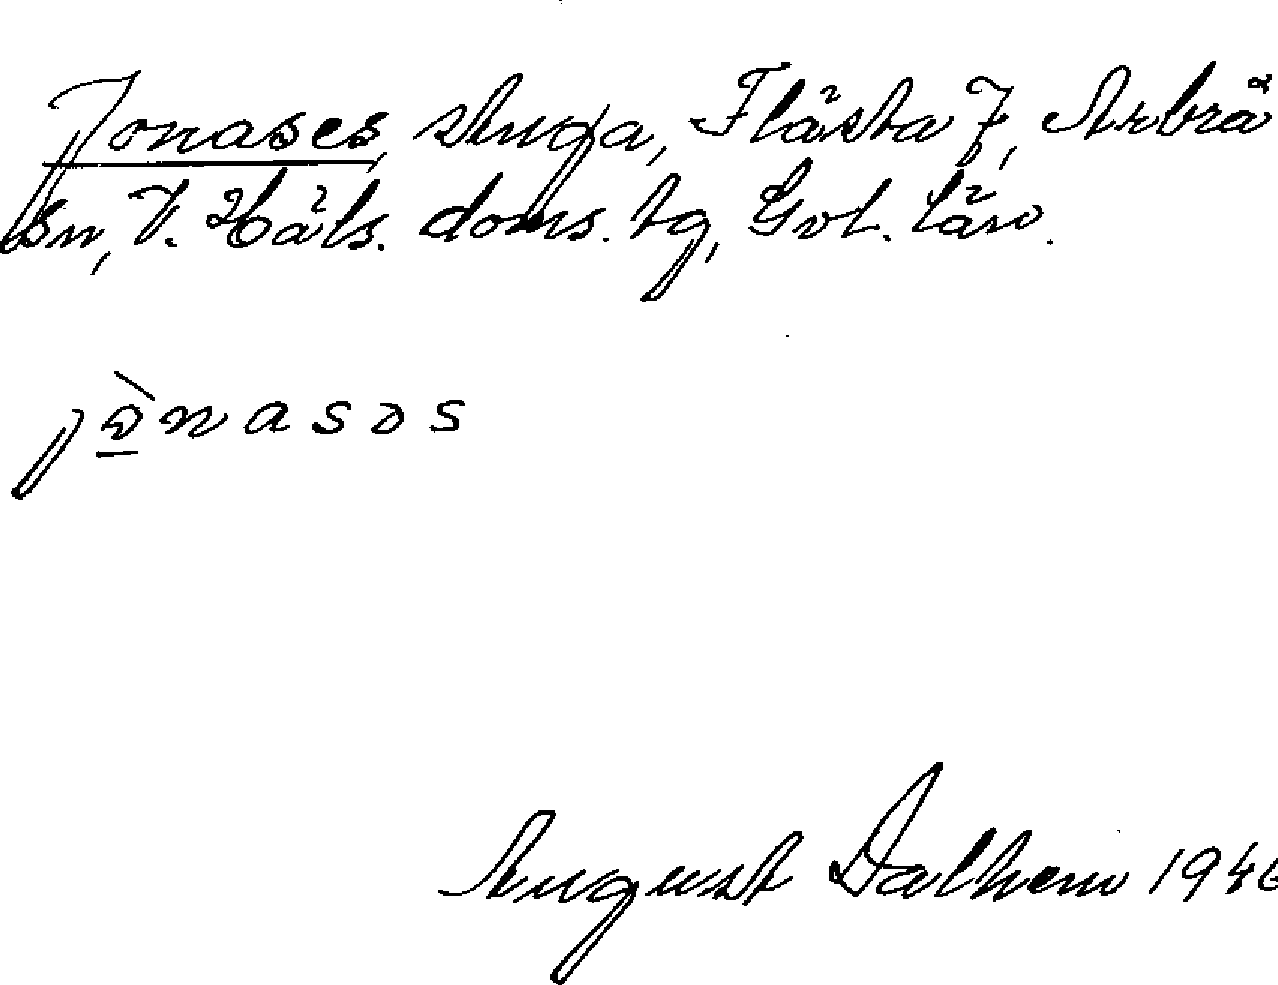 Jonases, stuga, Flästa 7, Arbrå
sn, V. Häls. doms. tg, Gvl. län.
jònasos
August Dalhem 1946